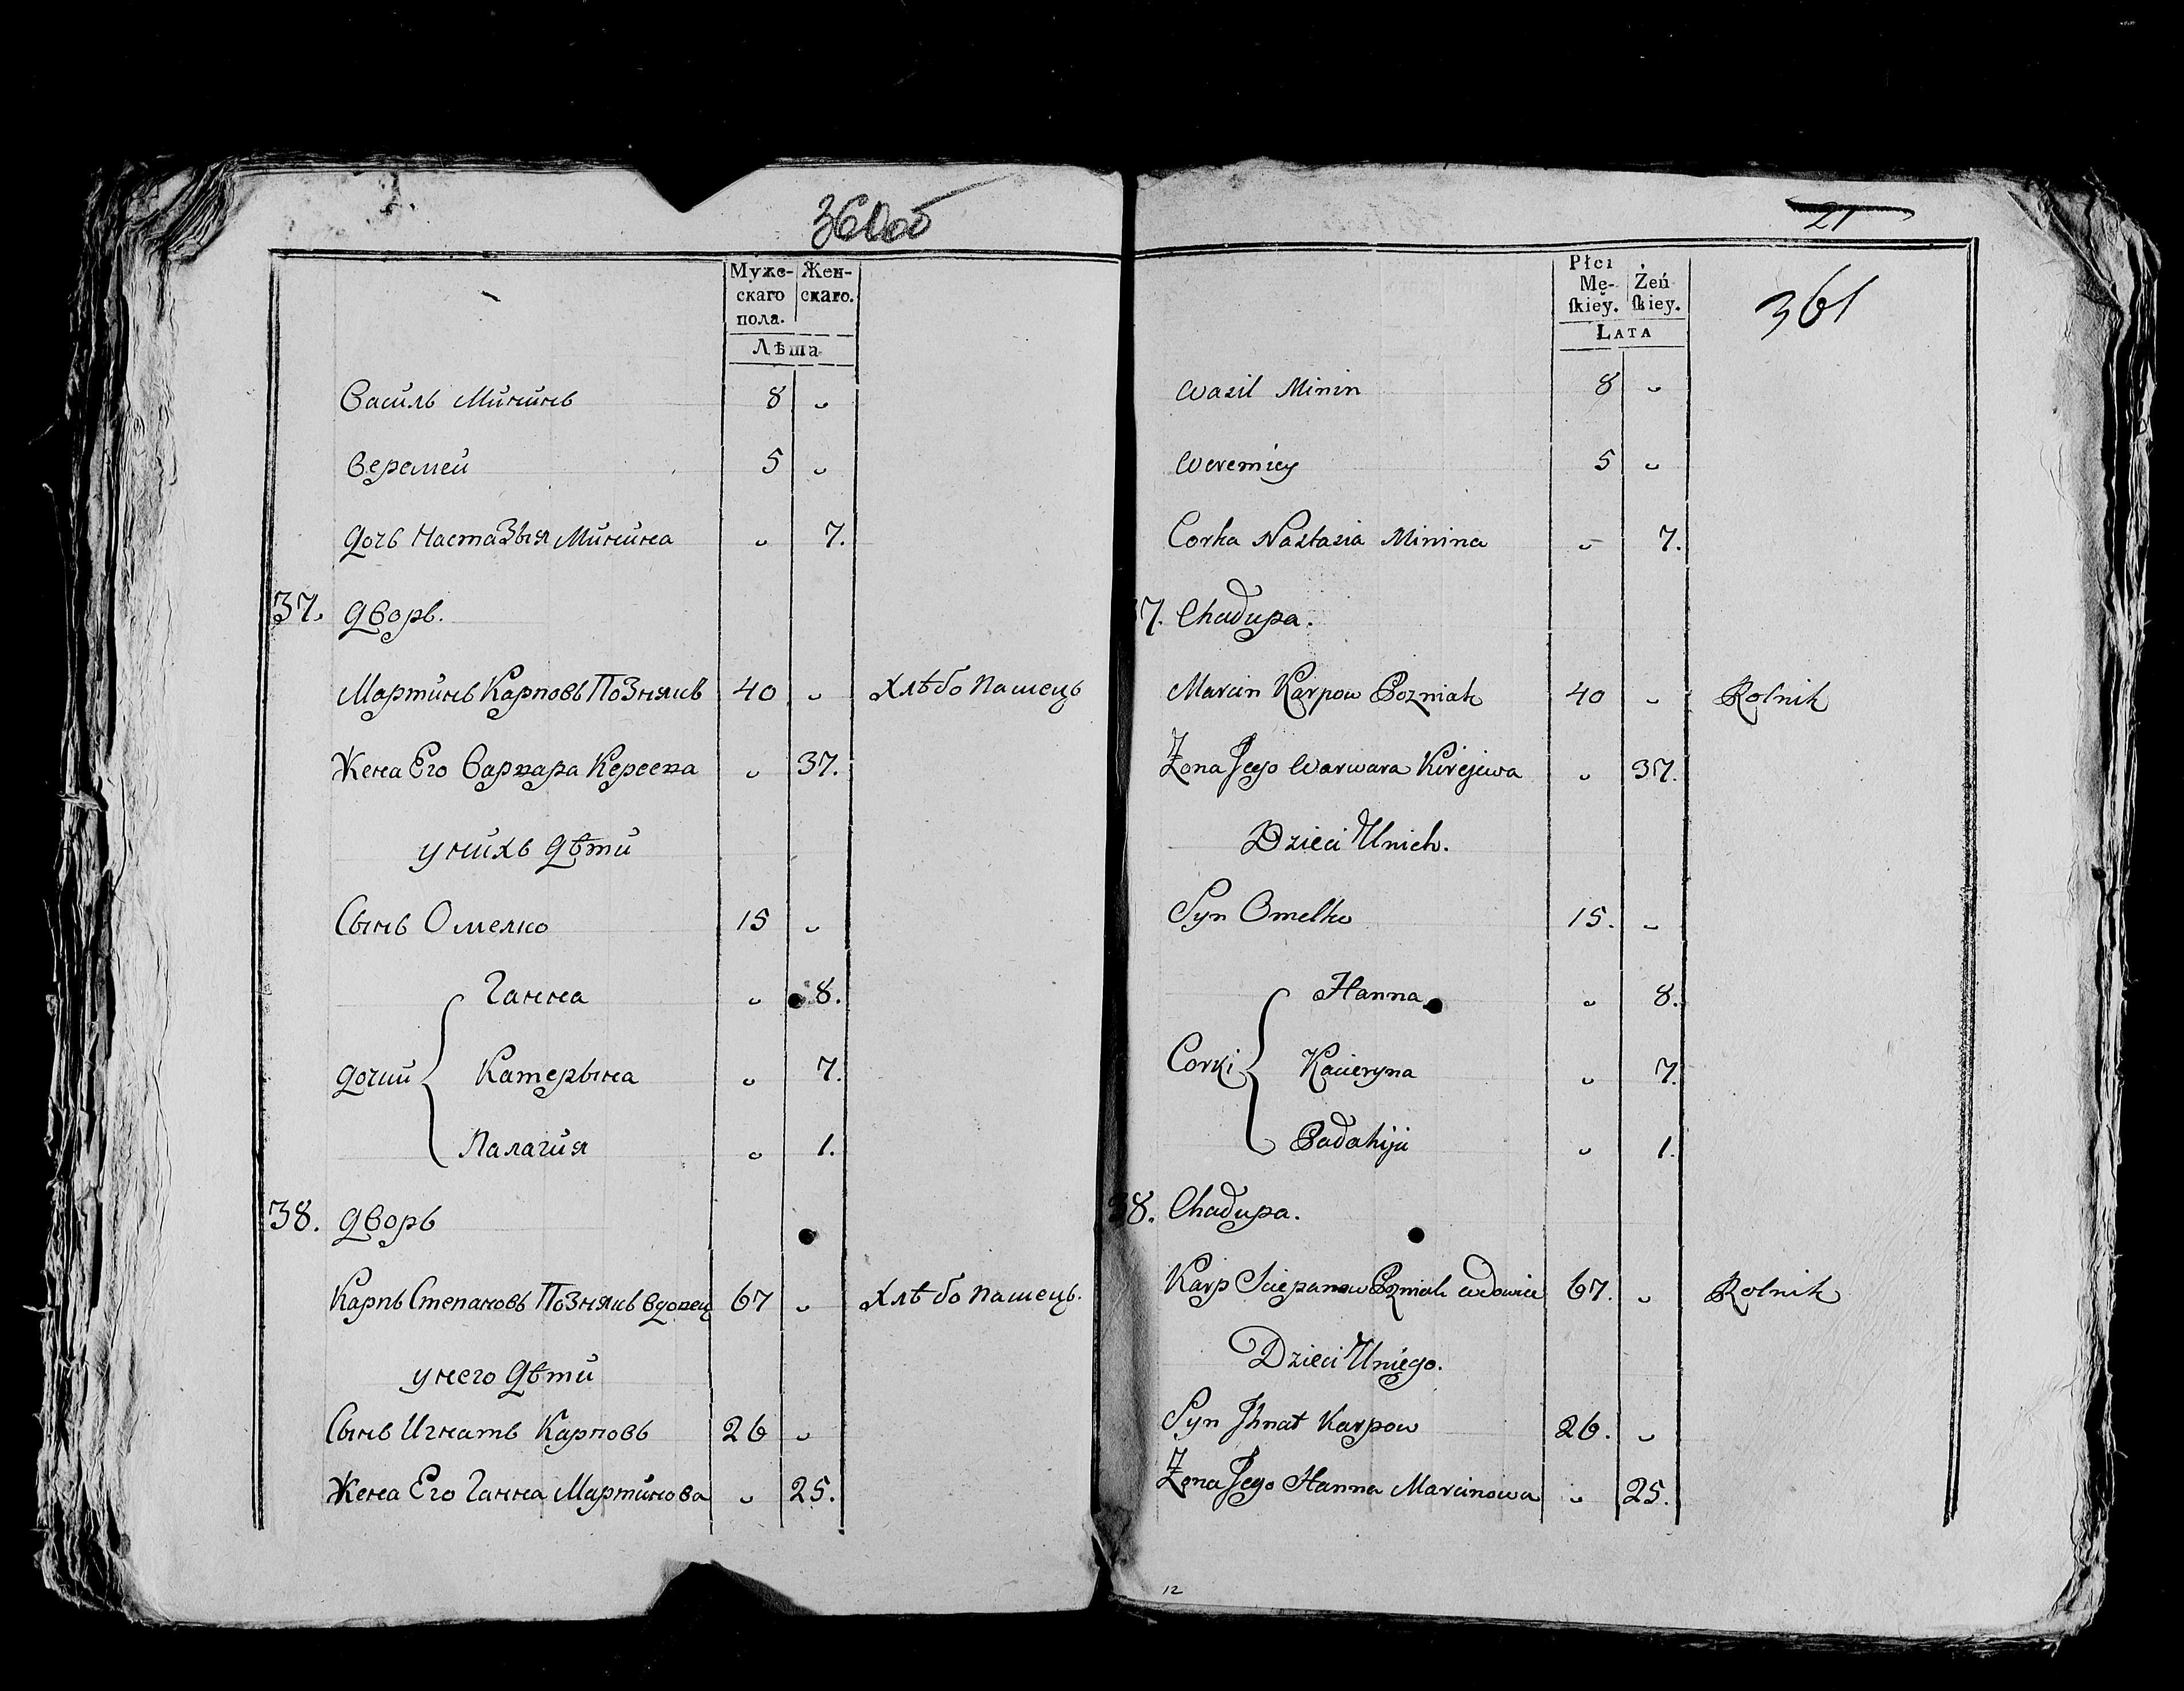 360об
Муже-
скаго
пола.
Жен-
скаго.
Лѣта
Василь Мининъ 8 "
Веремей 5 "
Дочь Настазыя Минина " 7.
37. Дворъ.
Мартинъ Карповъ Познякъ 40 " Хлѣбопашецъ
Жена Его Варвара Кереева " 37.
У нихъ Дѣти
Сынъ Омелко 15 "
Ганна " 8.
Дочии { Катерына " 7.
Палагия " 1.
38. Дворъ
Карпъ Степановъ Познякъ вдовец 67 " Хлѣбопашецъ.
У него Дѣти
Сынъ Игнатъ Карповъ 26 "
Жена Его Ганна Мартинова " 25.
21
361
Płci
Mę-
skiey.
Żeń
skiey.
Lata
Wasil Minin 8 "
Weremiey 5 "
Corka Nastasia Minina " 7.
7. Chadupa.
Marcin Karpow Pozniak 40 " Rolnik
Żona Jego Warwara Kirejewa " 37.
Dzieci Unich.
Syn Omelko 15. "
Hanna " 8.
Corki { Kacieryna " 7.
Padahija " 1.
38. Chadupa.
Karp Sciepanow Pozniak wdowiec 67. " Rolnik
Dzieci Uniego.
Syn Jhnat Karpow 26. "
Żona Jego Hanna Marcinowa " 25.
12